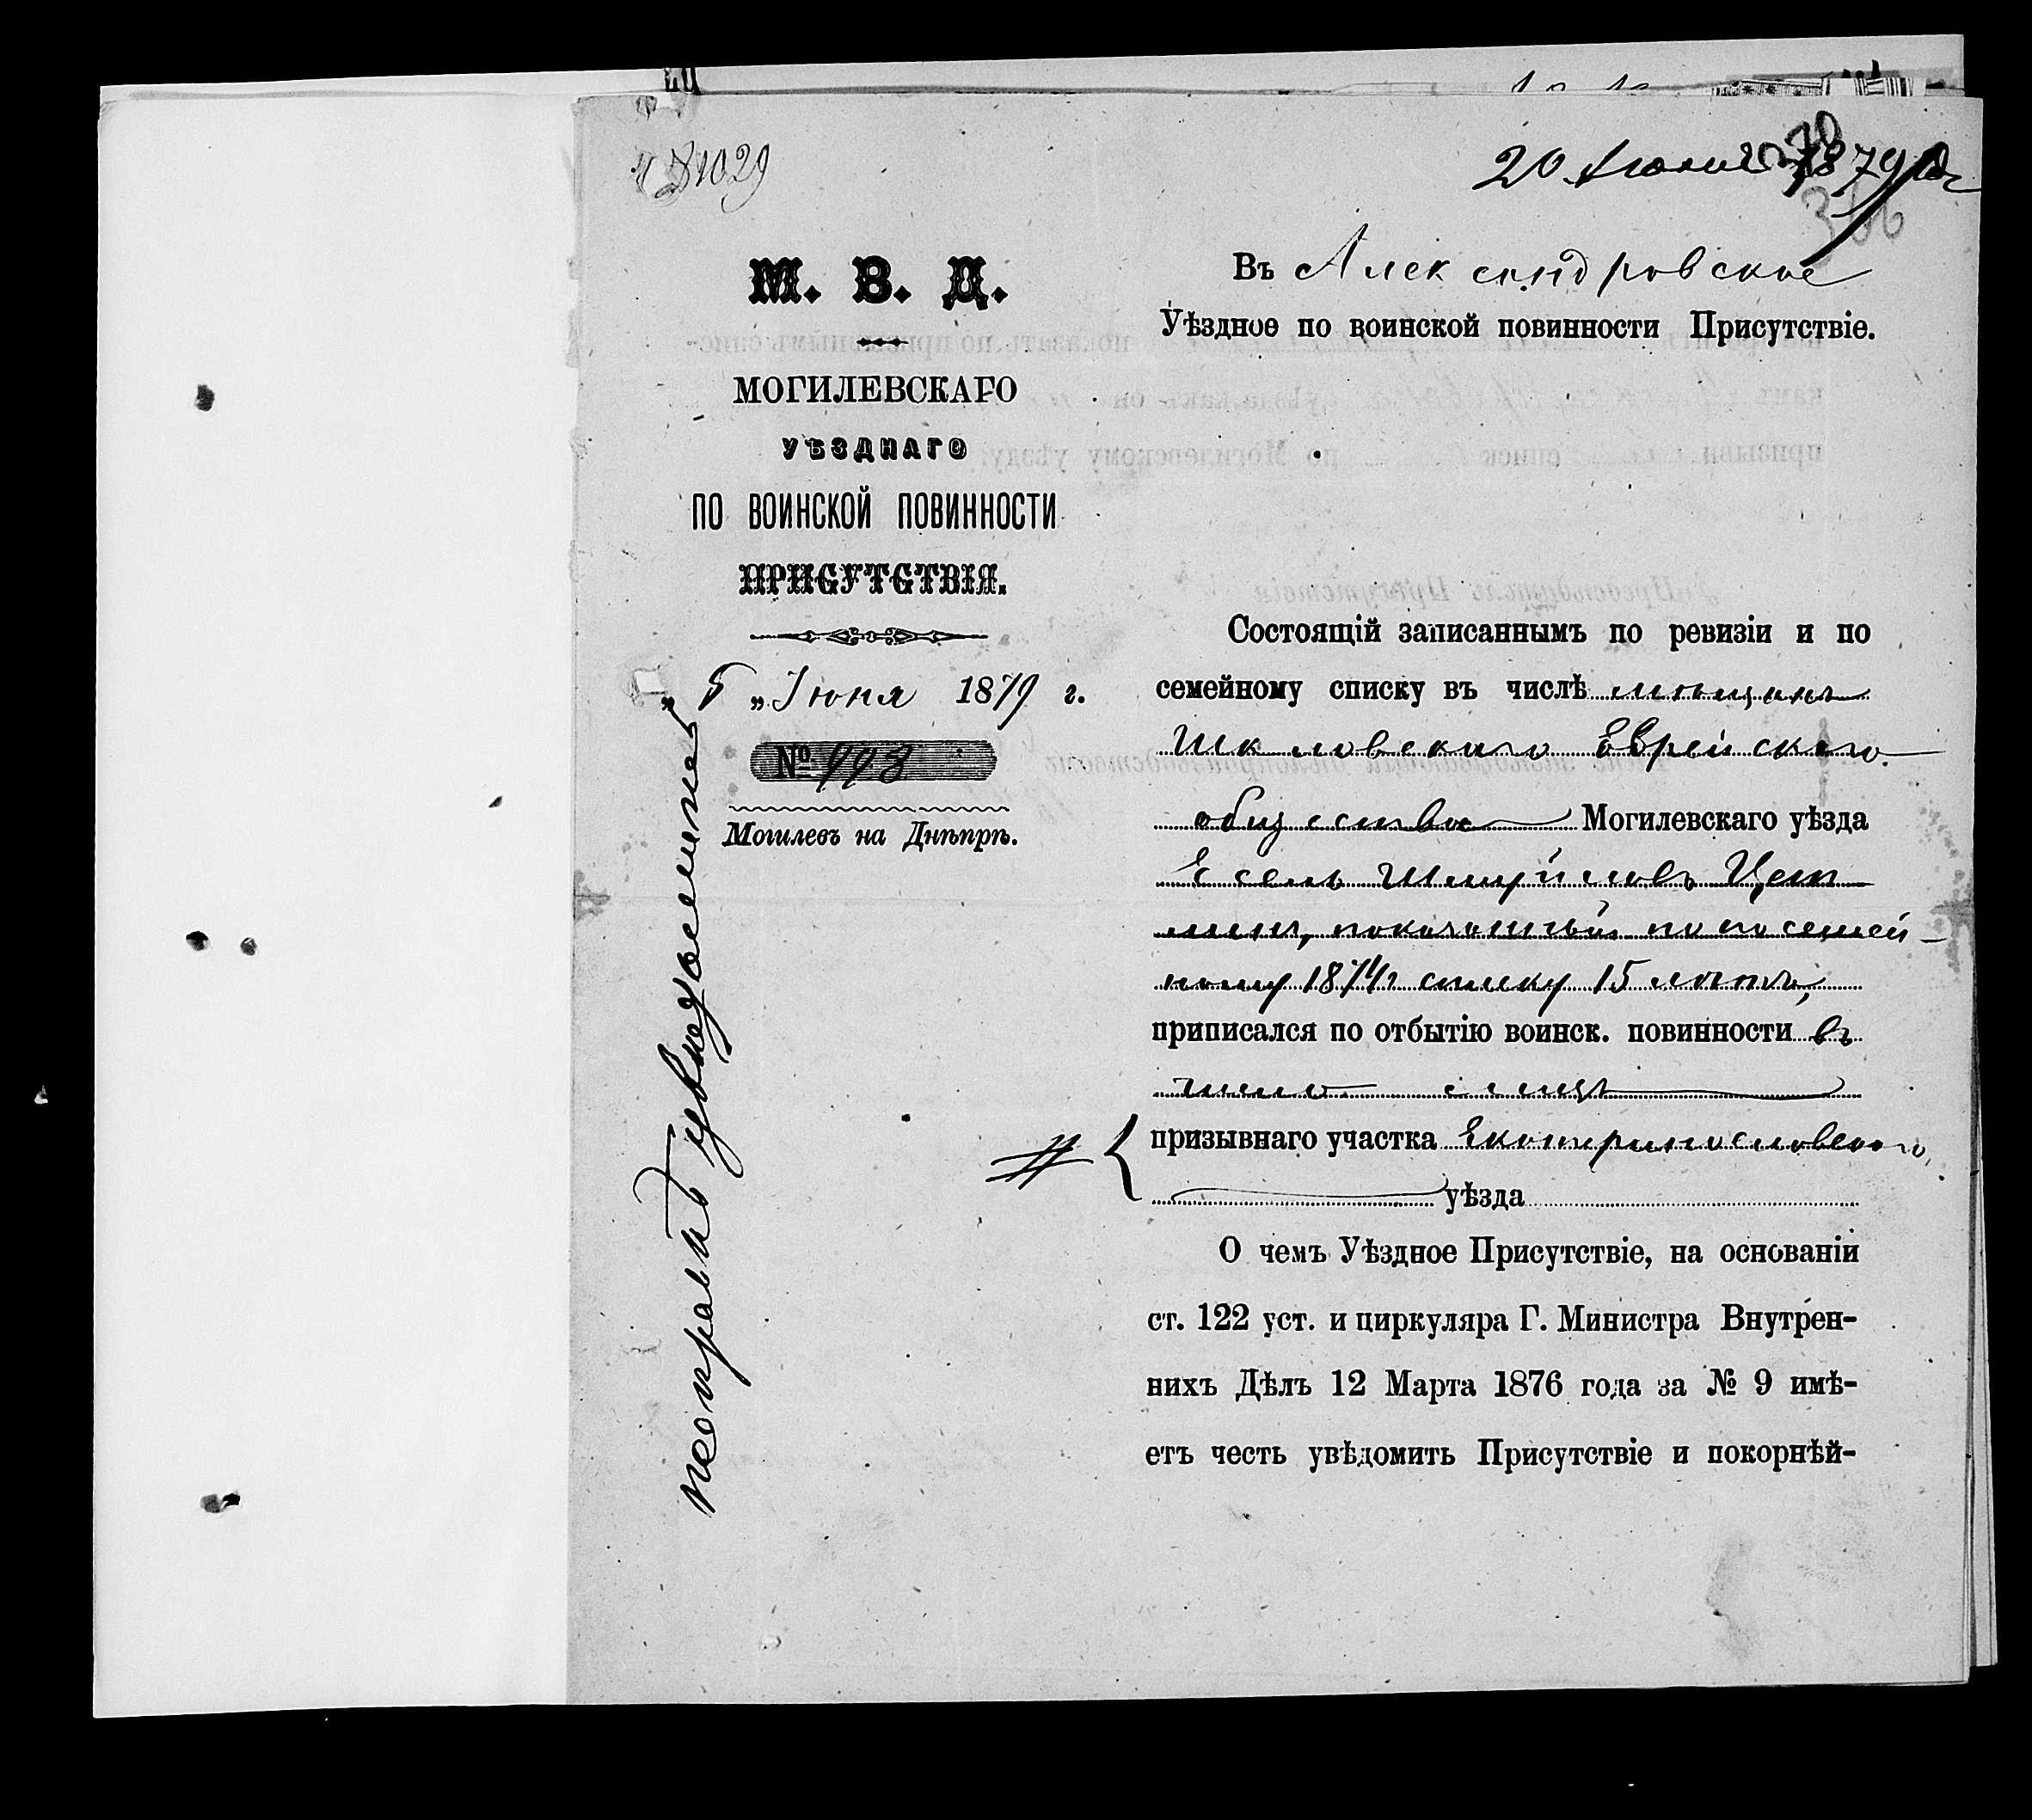 № 1029
20 Июня 1879 г.
М. В. Д.
МОГИЛЕВСКАГО
УѢЗДНАГО
ПО ВОИНСКОЙ ПОВИННОСТИ
ПРИСУТСТВІЯ.
„ 5 „ Іюня 1879 г.
№ 998
Могилевъ на Днѣпрѣ.
Въ Александровское
Уѣздное по воинской повинности Присутствіе.
Состоящій записаннымъ по ревизіи и по
семейному списку въ числѣ мѣщанъ
Шкловскаго Еврейскаго
общества Могилевскаго уѣзда
Есель Шмуйловъ Цет
лин, показанный по семей-
ному 1874 г списку 15 лѣтъ,
приписался по отбытію воинск. повинности въ
призывнаго участка Екатеринославскаго
уѣзда
О чемъ Уѣздное Присутствіе, на основаніи
ст. 122 уст. и циркуляра Г. Министра Внутрен-
нихъ Дѣлъ 12 Марта 1876 года за № 9 имѣ-
етъ честь увѣдомить Присутствіе и покорнѣй-